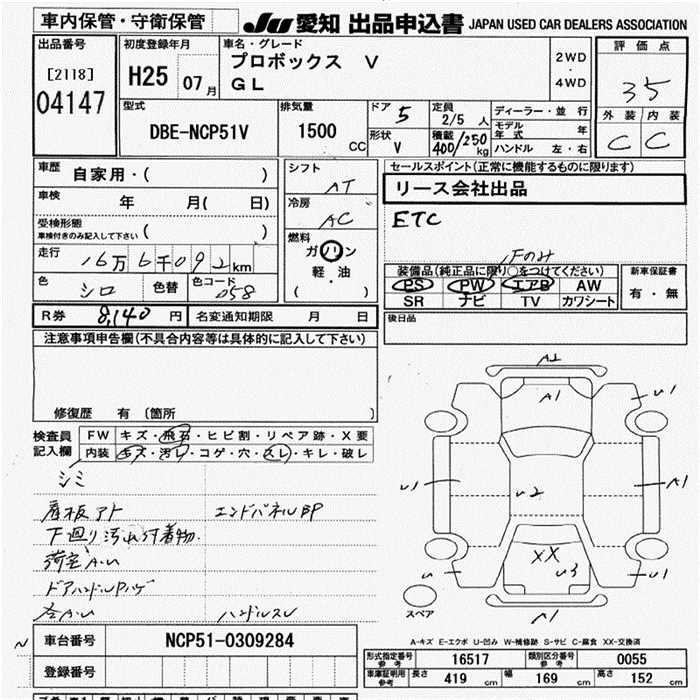 車内保管・守衛保管
JU 愛知 出品申込書 JAPAN USED CAR DEALERS ASSOCIATION
出品番号
[2118]
04147
初度登録年月
H25 07月
車名・グレード
プロボックス V
GL
2WD
・
4WD
評価点
35
外装 内装
C C
型式
DBE-NCP51V
排気量
1500 CC
ドア 5
形状 V
定員 2/5 人
積載 400/250 kg
ディーラー・並行
モデル年式 年
ハンドル 左・右
車歴 自家用・( )
車検 年 月( 日)
受検形態
車検付きのみ記入して下さい ( )
走行 16万6千092km
色 シロ 色替 色コード 058
シフト AT
冷房 AC
燃料
ガソリン
軽・油
( )
セールスポイント(正常に機能するものに限ります)
リース会社出品
ETC
Fのみ
装備品(純正品に限り○をつけてください)
PS PW エアB AW
SR ナビ TV カワシート
新車保証書
有・無
R券 8,140円 名変通知期限 月 日
後日品
注意事項申告欄(不具合内容等は具体的に記入して下さい)
修復歴 有 〔箇所
検査員
記入欄
FW キズ・飛石・ヒビ割・リペア跡・X要
内装 キズ・汚レ・コゲ・穴・スレ・キレ・破レ
シミ
床板アト エンドパネルBP
下廻り汚れ付着物.
荷室A.U
ドアハンドルPハゲ
各A.U ハンドルスレ
A1
U1
U1 U2 A1
XX
U U3 U1
A1
スペア
A-キズ E-エクボ U-凹み W-補修跡 S-サビ C-腐食 XX-交換済
車台番号 NCP51-0309284
登録番号
形式指定番号 参考 16517 類別区分番号 参考 0055
車庫証明用 参考 長さ 419 cm 幅 169 cm 高さ 152 cm